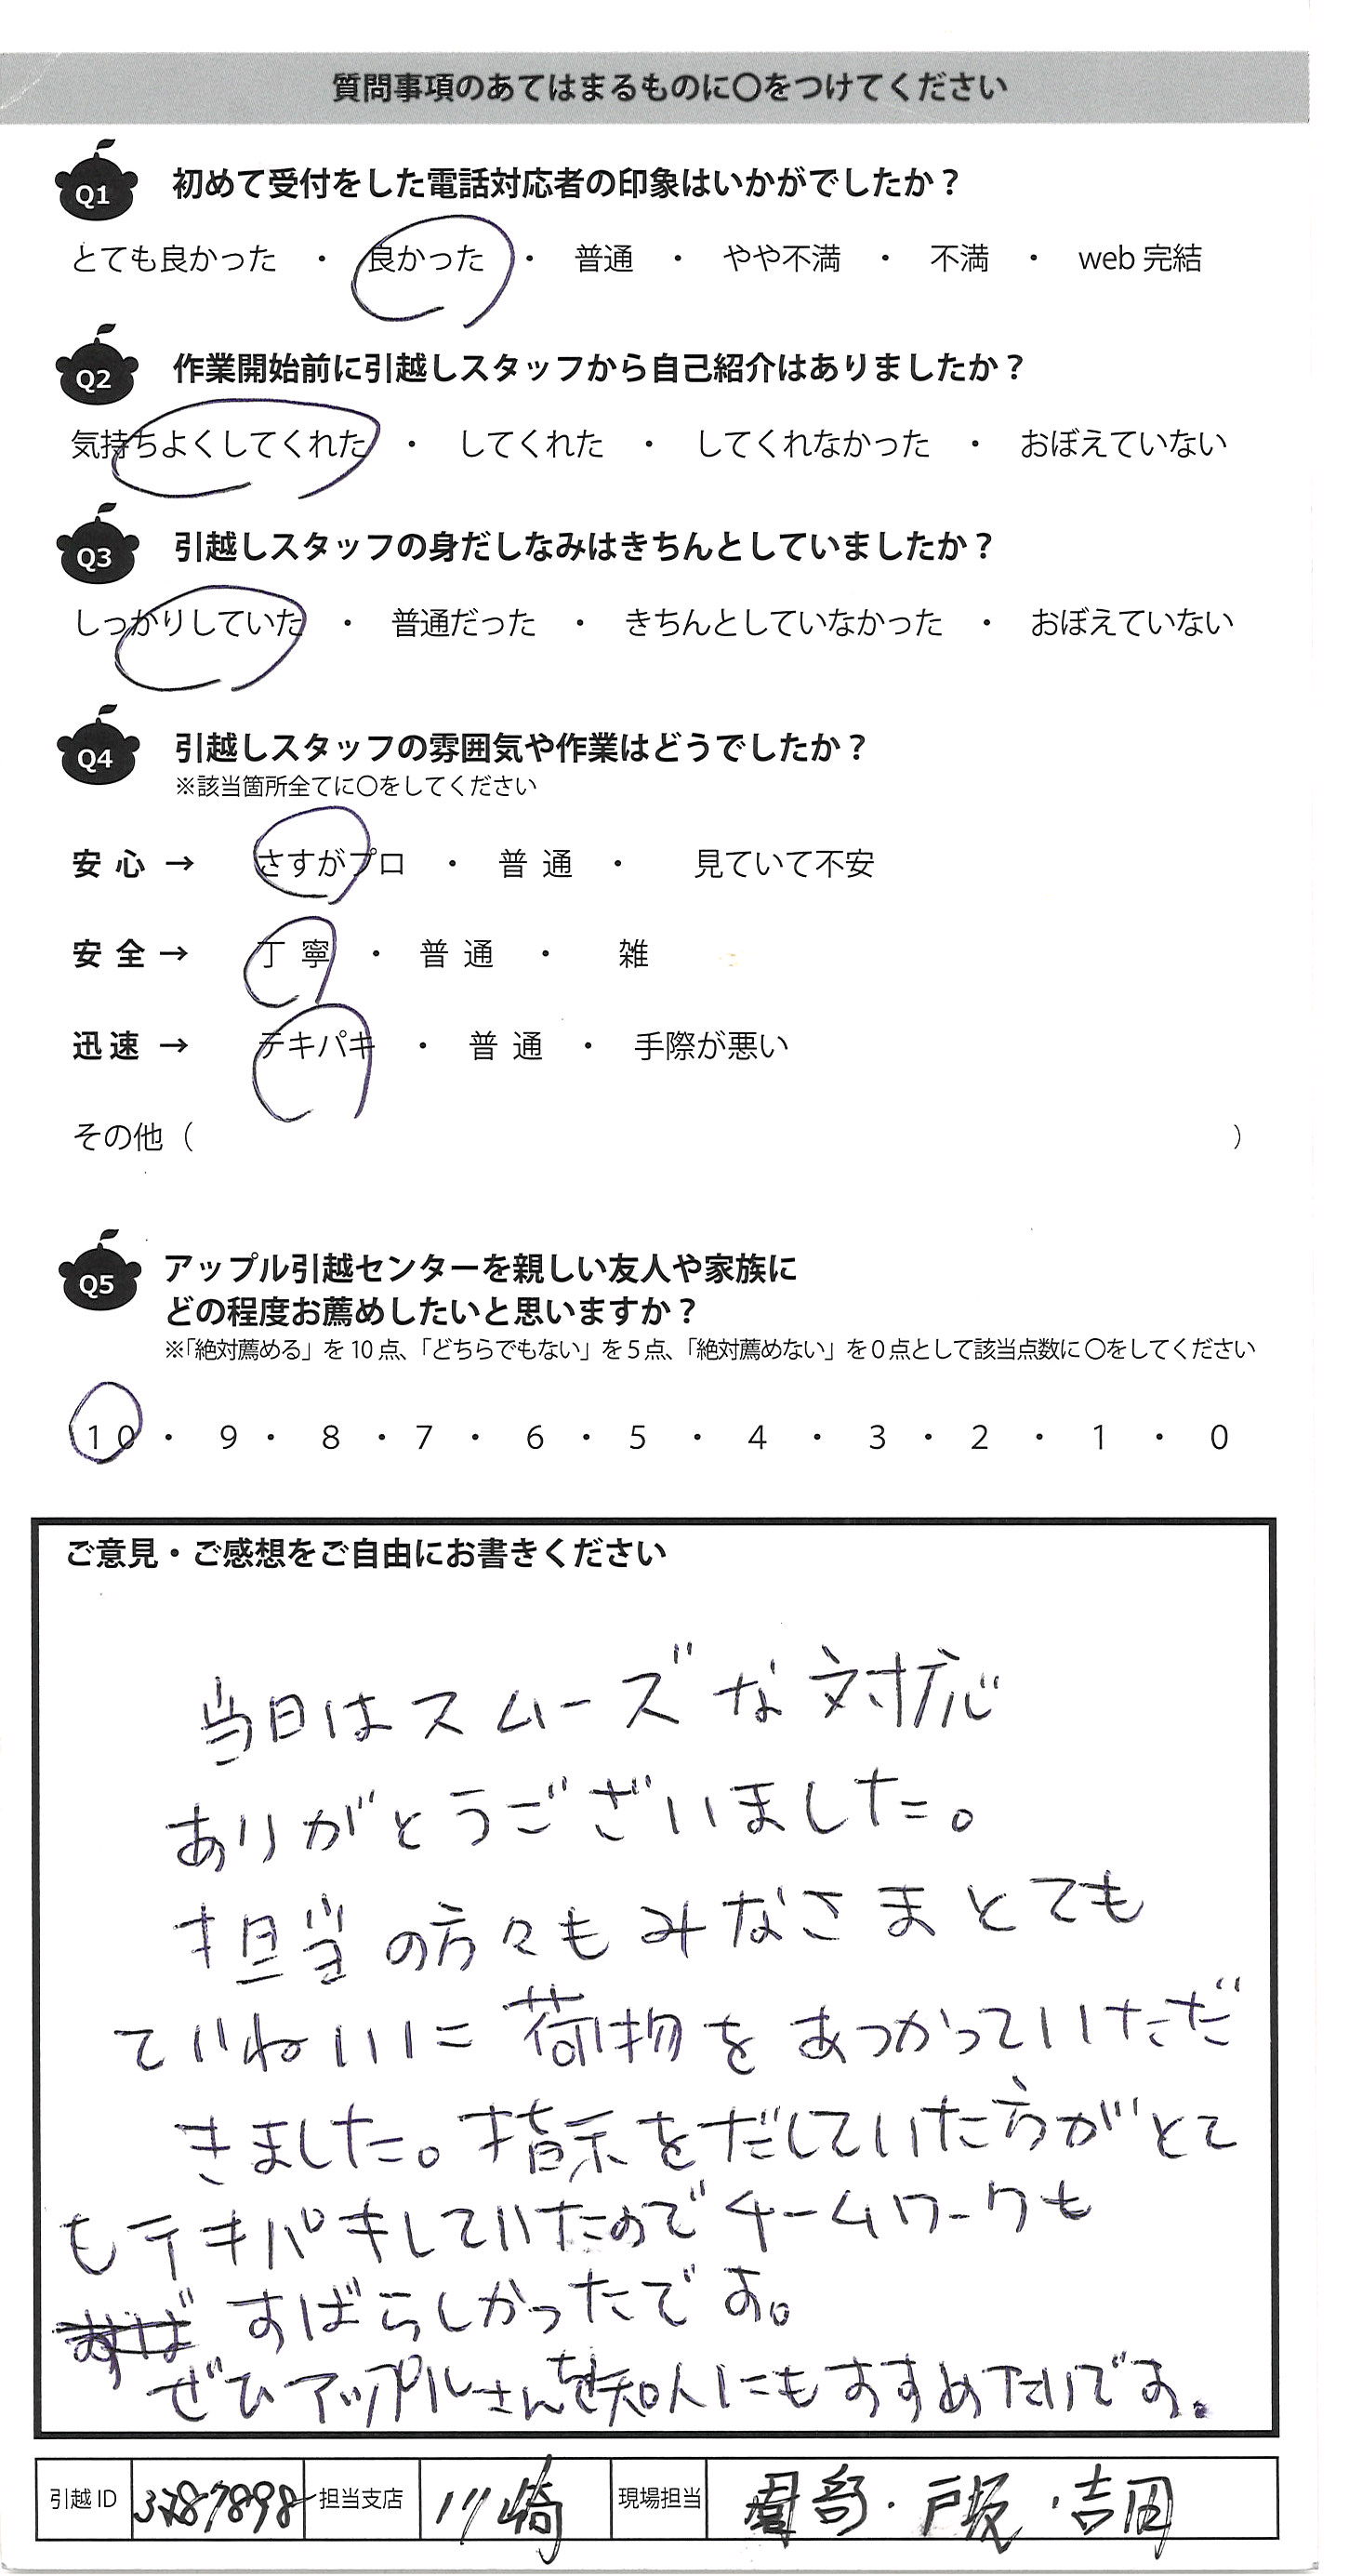 質問事項のあてはまるものに〇をつけてください
Q1 初めて受付をした電話対応者の印象はいかがでしたか？
とても良かった ・ 良かった ・ 普通 ・ やや不満 ・ 不満 ・ web 完結
Q2 作業開始前に引越しスタッフから自己紹介はありましたか？
気持ちよくしてくれた ・ してくれた ・ してくれなかった ・ おぼえていない
Q3 引越しスタッフの身だしなみはきちんとしていましたか？
しっかりしていた ・ 普通だった ・ きちんとしていなかった ・ おぼえていない
Q4 引越しスタッフの雰囲気や作業はどうでしたか？
※該当箇所全てに〇をしてください
安心 → さすがプロ ・ 普通 ・ 見ていて不安
安全 → 丁寧 ・ 普通 ・ 雑
迅速 → テキパキ ・ 普通 ・ 手際が悪い
その他（ ）
Q5 アップル引越センターを親しい友人や家族に
どの程度お薦めしたいと思いますか？
※「絶対薦める」を 10 点、「どちらでもない」を 5 点、「絶対薦めない」を 0 点として該当点数に 〇をしてください
10 ・ 9 ・ 8 ・ 7 ・ 6 ・ 5 ・ 4 ・ 3 ・ 2 ・ 1 ・ 0
ご意見・ご感想をご自由にお書きください
当日はスムーズな対応
ありがとうございました。
担当の方々もみなさまとても
ていねいに荷物をあつかっていただ
きました。指示をだしていた方がとて
もテキパキしていたのでチームワークも
すばらしかったです。
ぜひアップルさんを知人にもおすすめしたいです。
引越 ID 3787898 担当支店 川崎 現場担当 戸坂・吉田